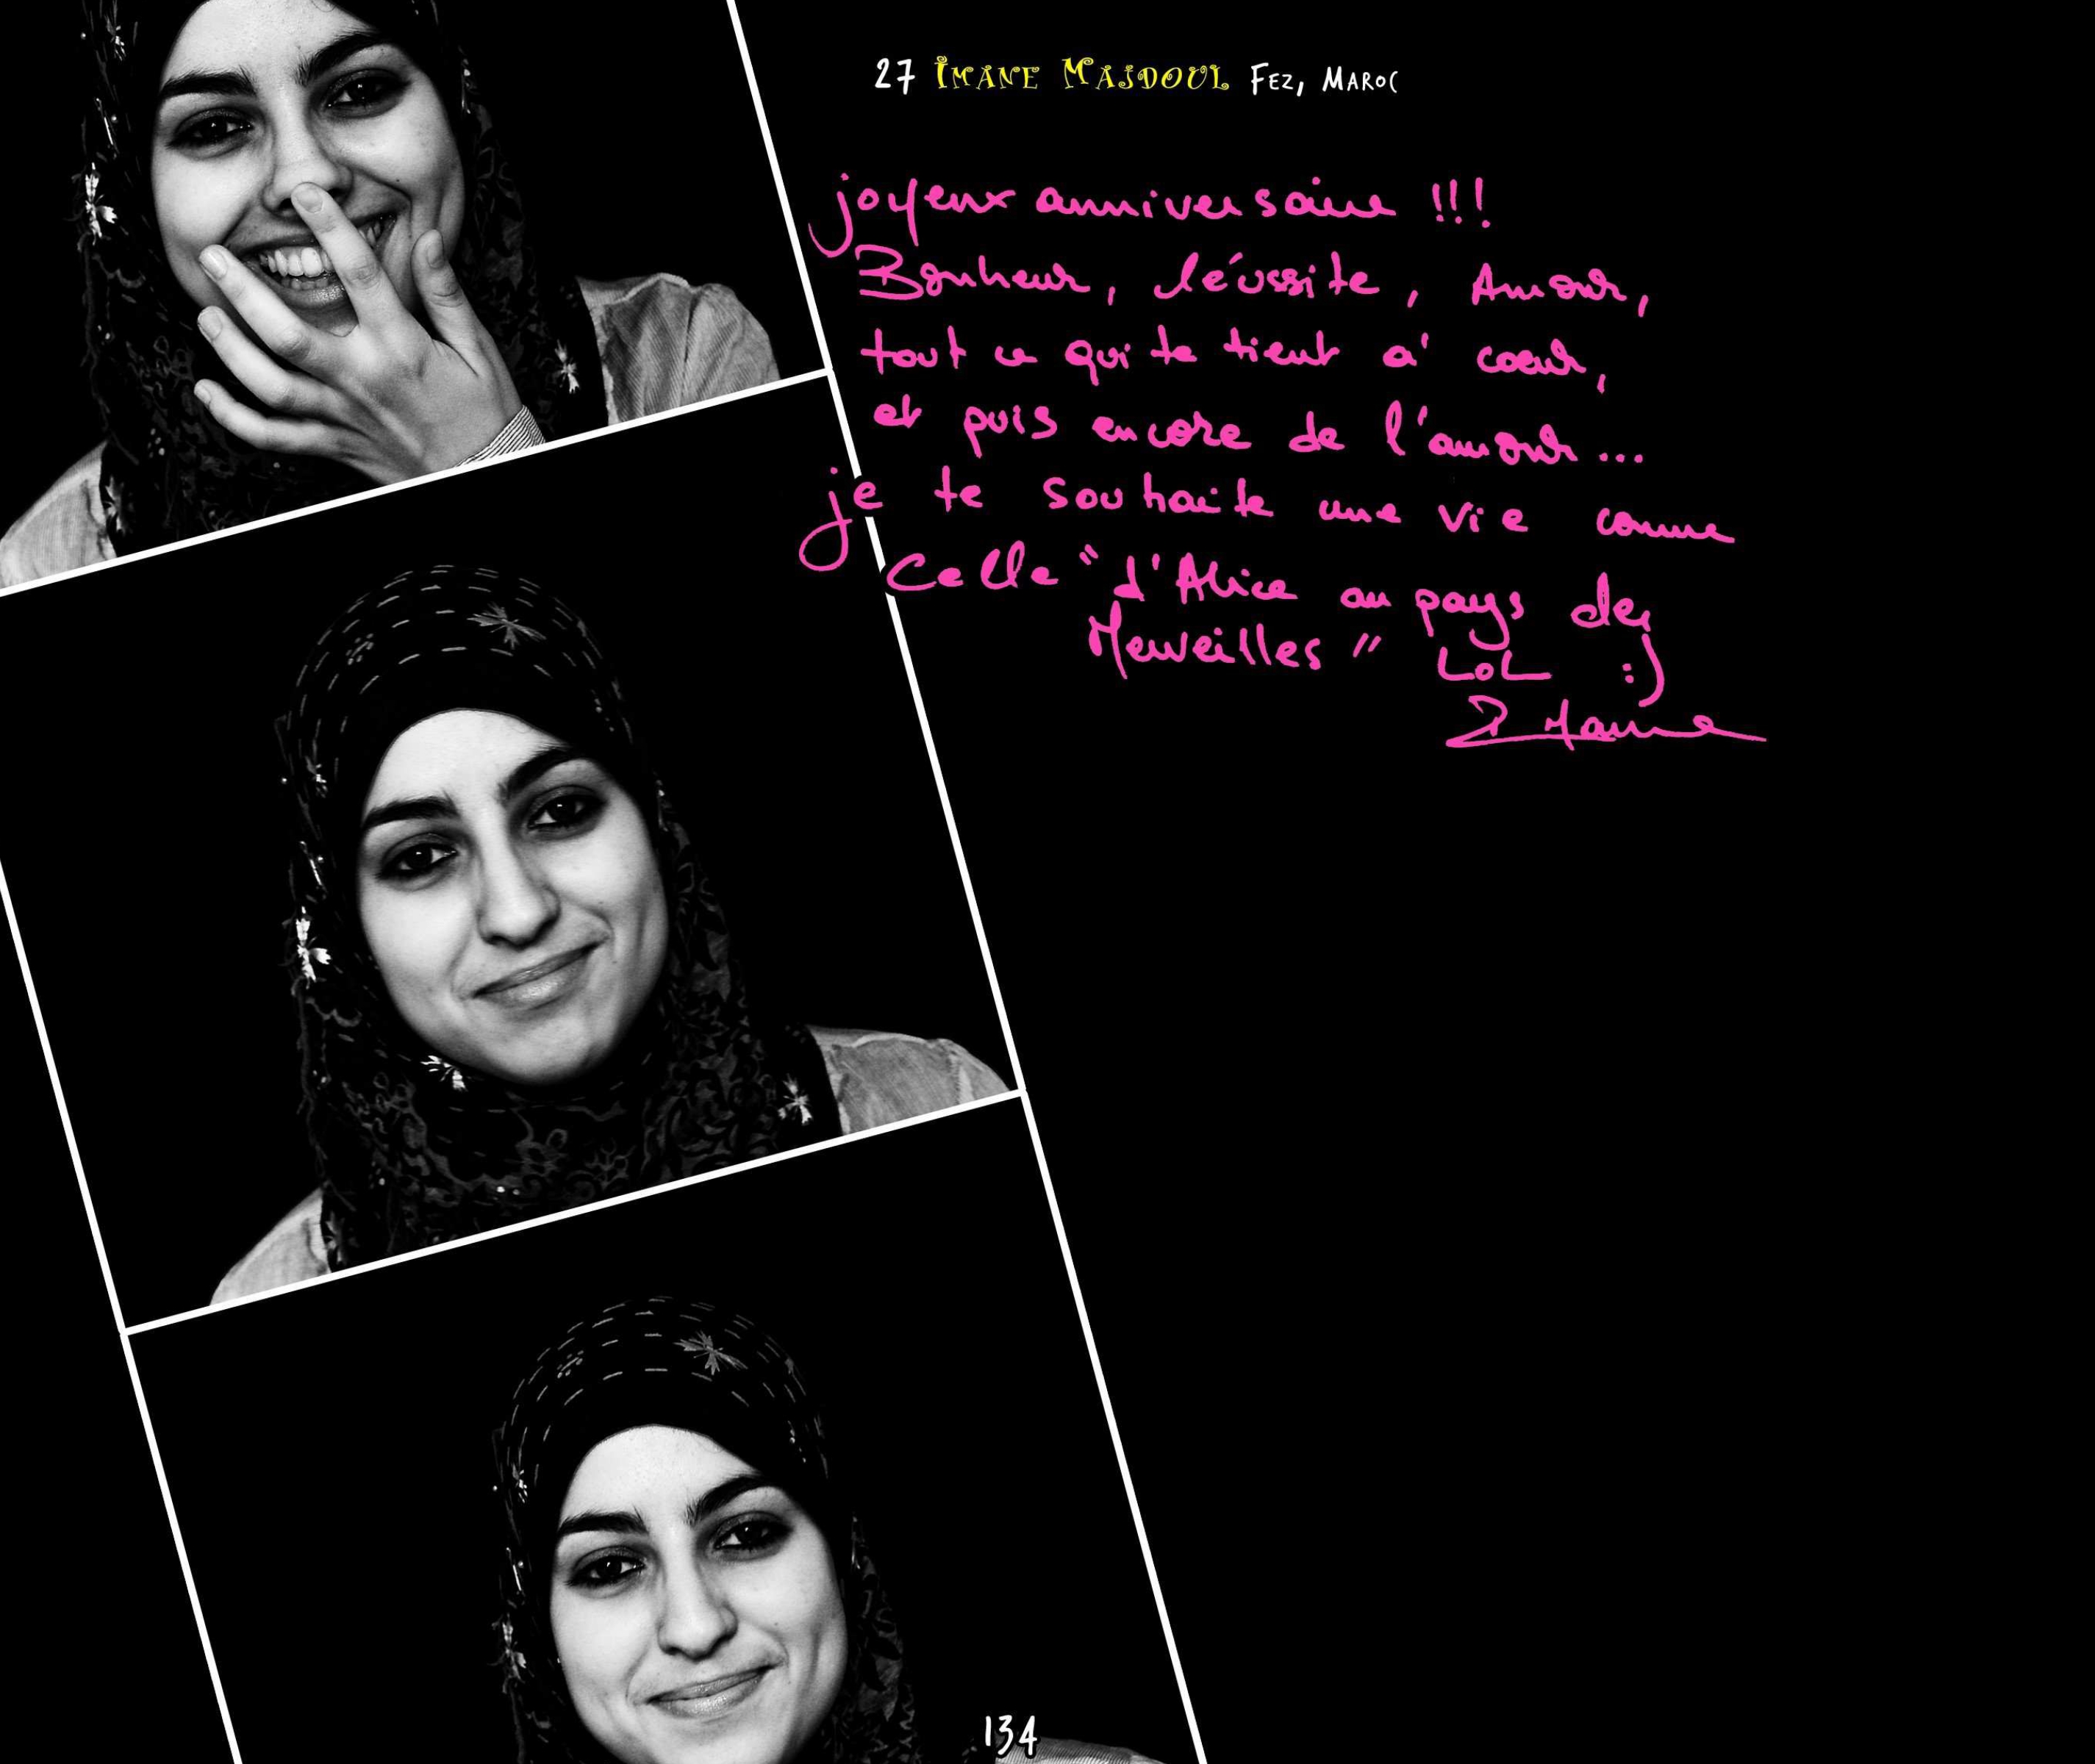 27 IMANE MAJDOUL FEZ, MAROC
joyeux anniversaire !!!
Bonheur, réussite, Amour,
tout ce qui te tient à coeur,
et puis encore de l'amour...
je te souhaite une vie comme
celle "d'Alice au pays des
Merveilles" LOL :)
Imane
134